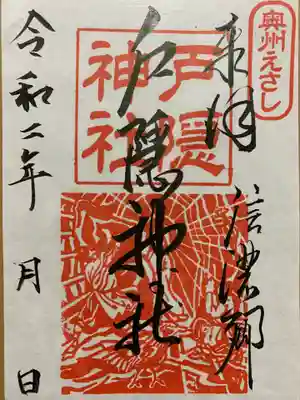 奥州えさし
奉拝
信濃郷
戸隠神社
戸隠
神社
令和二年 月 日